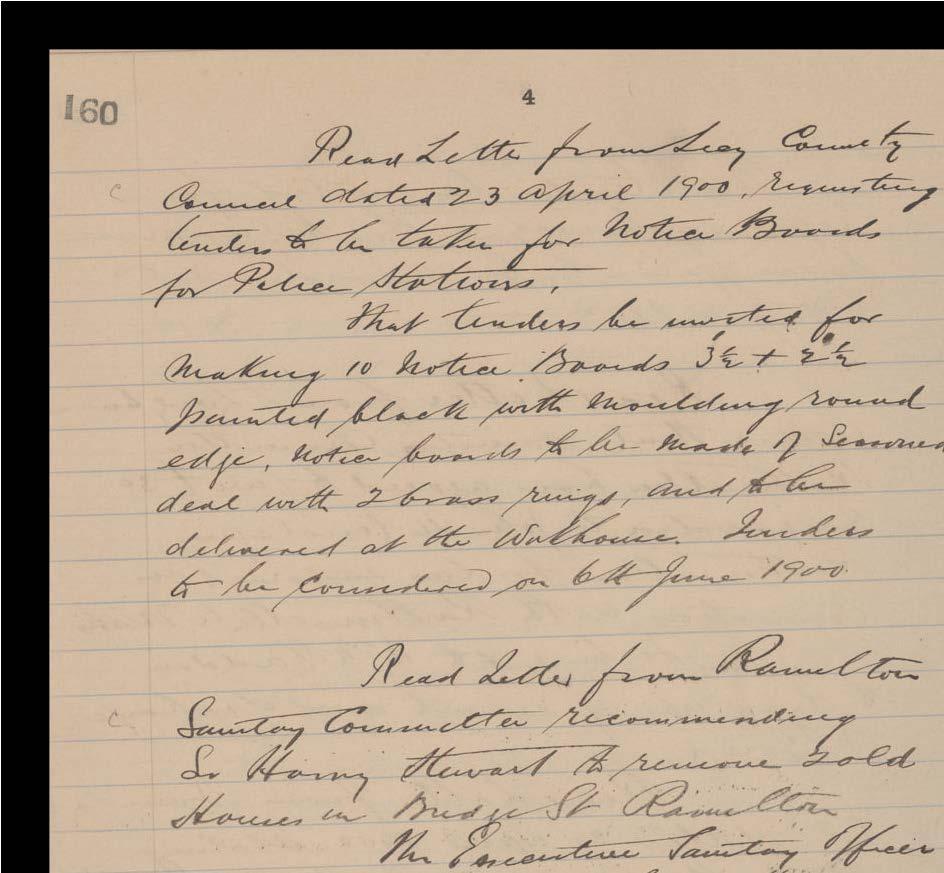 160
4
Read Letter from Secy County
Council dated 23 April 1900, requesting
tenders to be taken for Notice Boards
for Police Stations.
That tenders be invited for
making 10 Notice Boards 3½ + 2½
painted black with moulding round
edge, notice boards to be made of Seasoned
deal with 2 brass rings, and to be
delivered at the Workhouse. Tenders
to be Considered on 6th June 1900.
Read Letter from Ramelton
C
Sanitay Committee recommending
Sr Harry Stewart to remove 2 old
Houses in Bridge St Ramelton
The Executive Sanitay Officer